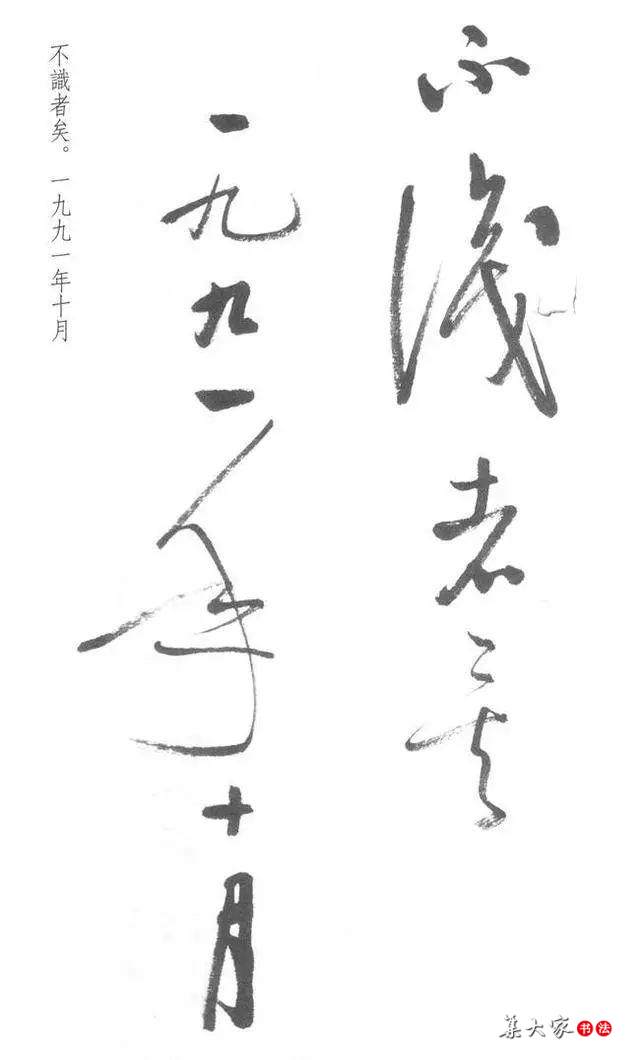 不識者矣
一九九一年十月
不識者矣。一九九一年十月
集大家书法